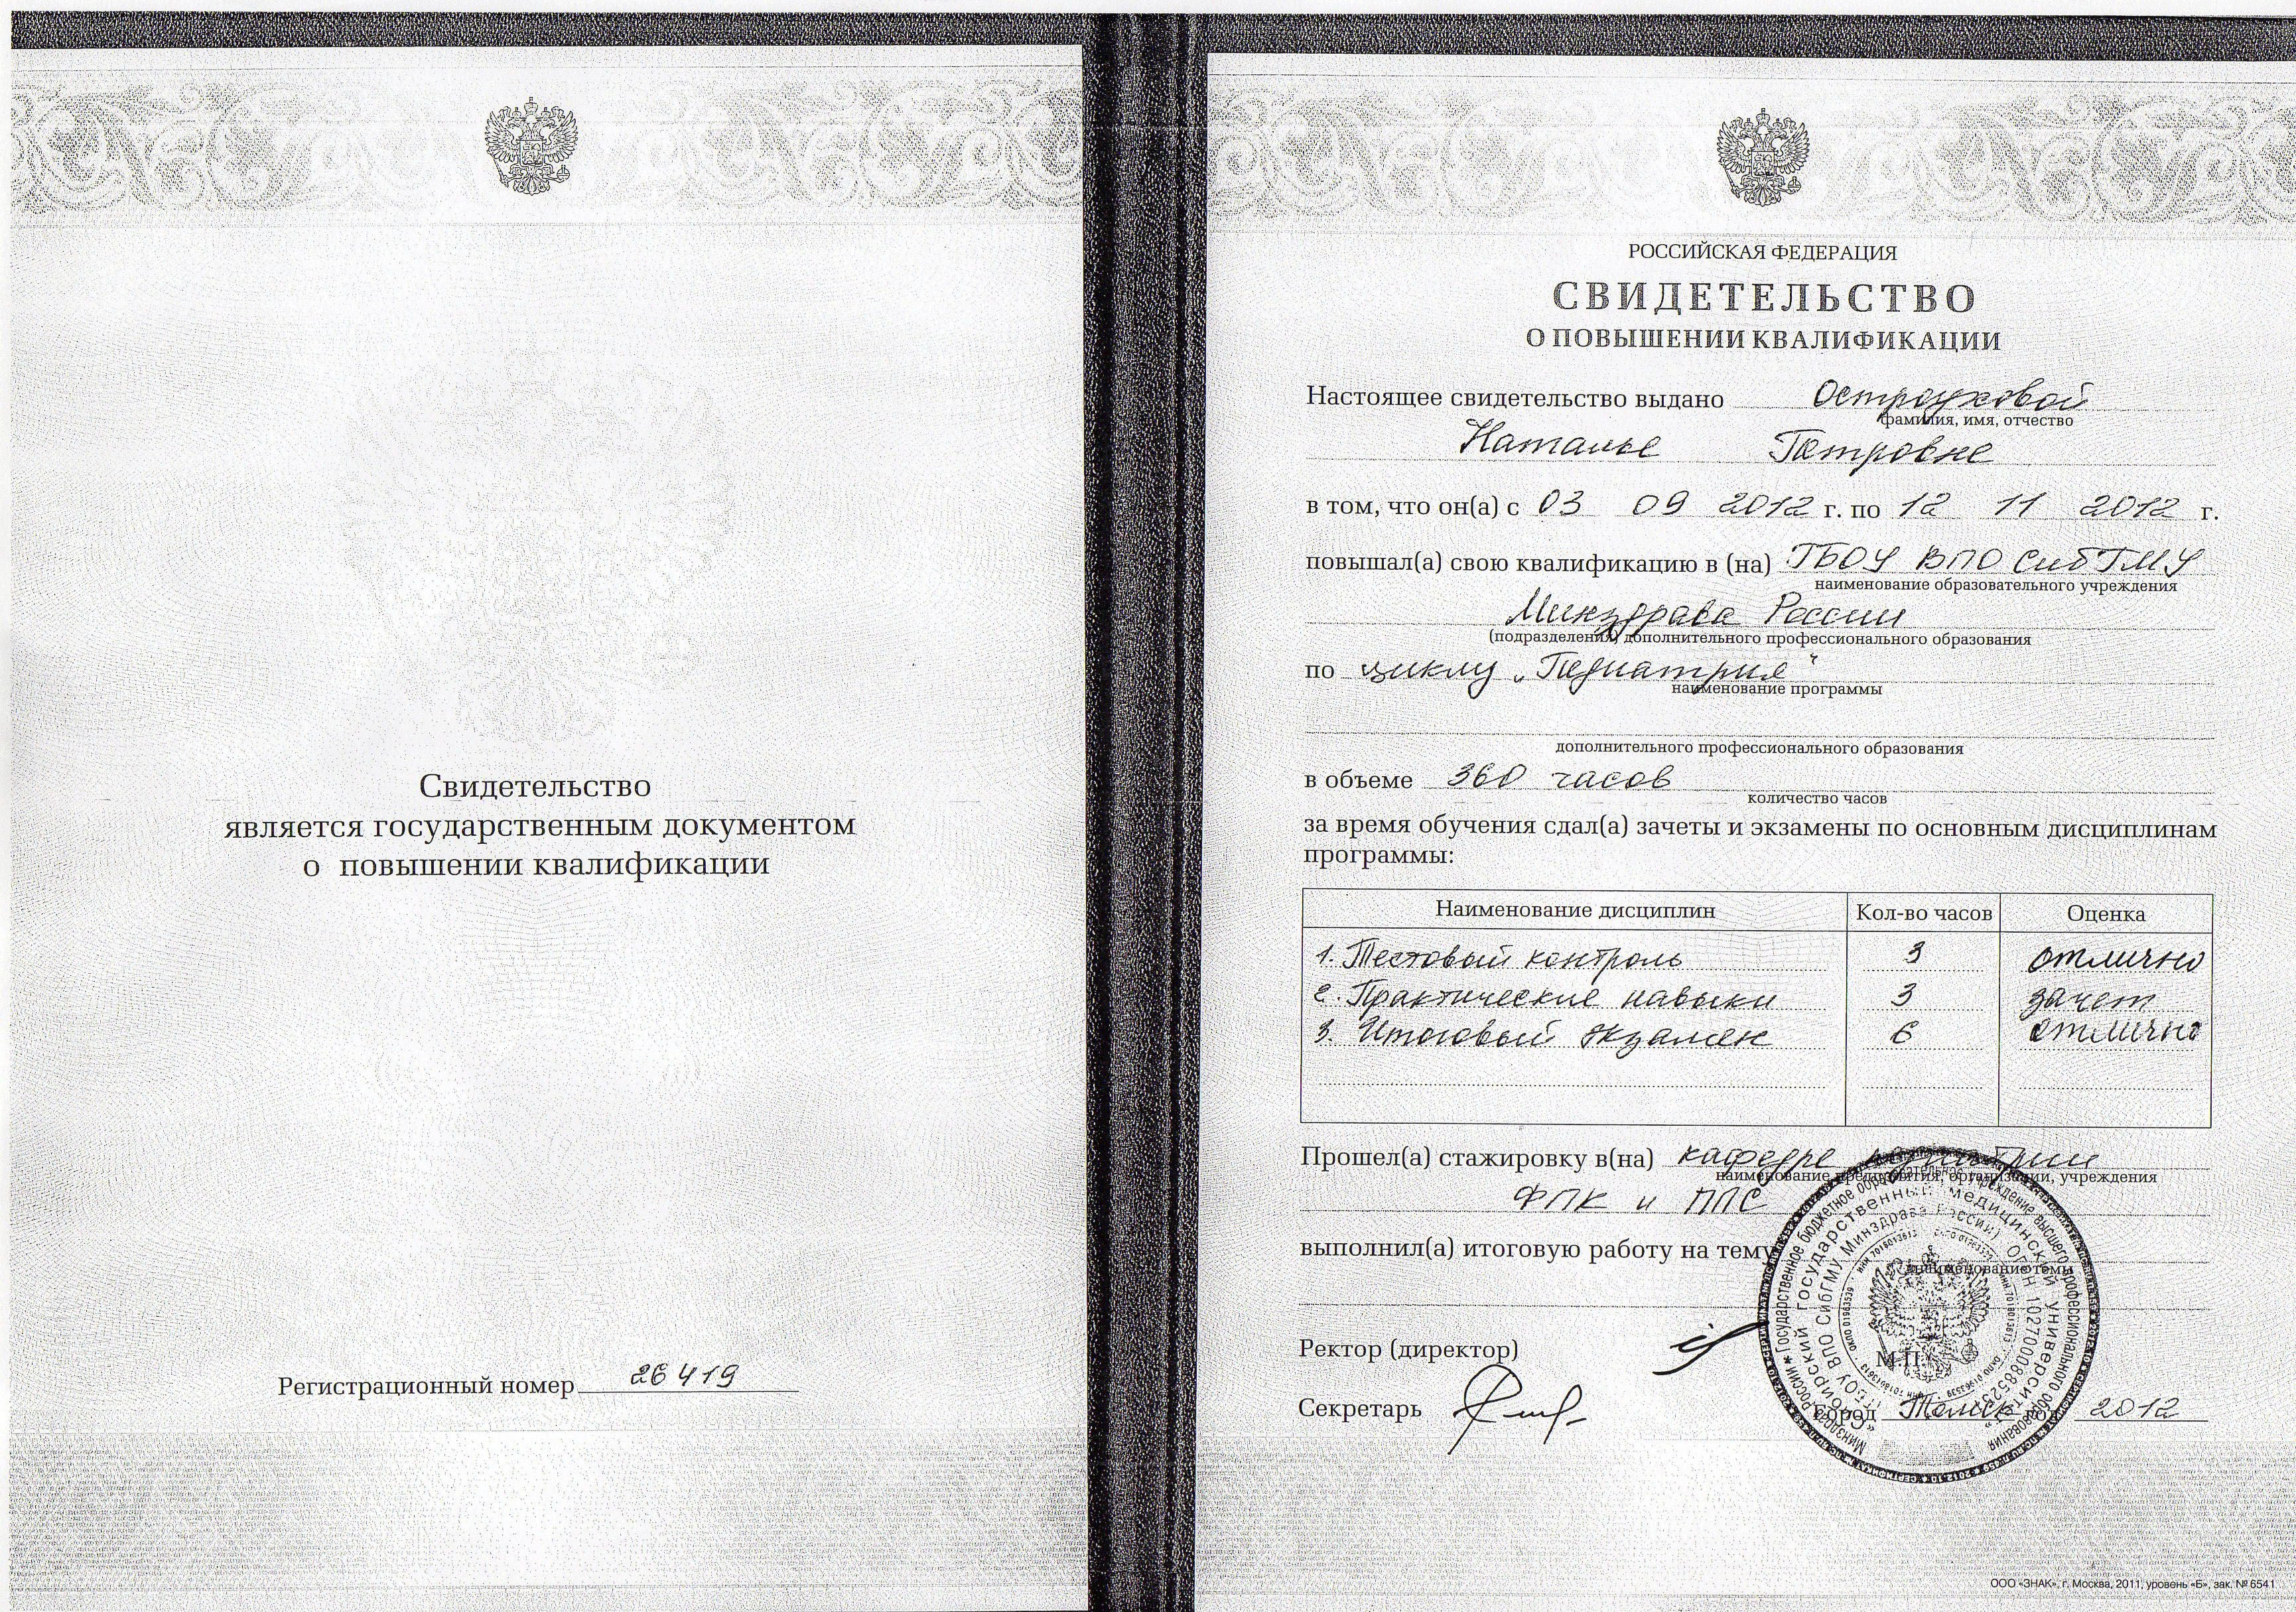 Свидетельство
является государственным документом
о повышении квалификации
Регистрационный номер 26419
РОССИЙСКАЯ ФЕДЕРАЦИЯ
СВИДЕТЕЛЬСТВО
О ПОВЫШЕНИИ КВАЛИФИКАЦИИ
Настоящее свидетельство выдано Остроуховой
фамилия, имя, отчество
Наталье Петровне
в том, что он(а) с 03 09 2012 г. по 12 11 2012 г.
повышал(а) свою квалификацию в (на) ГБОУ ВПО СибГМУ
наименование образовательного учреждения
Минздрава России
(подразделения) дополнительного профессионального образования
по циклу „Педиатрия“
наименование программы
дополнительного профессионального образования
в объеме 360 часов
количество часов
за время обучения сдал(а) зачеты и экзамены по основным дисциплинам
программы:
Наименование дисциплин Кол-во часов Оценка
1. Тестовый контроль 3 отлично
2. Практические навыки 3 зачет
3. Итоговый экзамен 6 отлично
Прошел(а) стажировку в(на) кафедре педиатрии
наименование предприятия, организации, учреждения
ФПК и ППС
выполнил(а) итоговую работу на тему
наименование темы
Ректор (директор)
М.П.
Секретарь
город Томск год 2012
Государственное бюджетное образовательное учреждение высшего профессионального образования
«Сибирский государственный медицинский университет»
Минздрава России
ООО «ЗНАК», г. Москва, 2011, уровень «Б», зак. № 6541